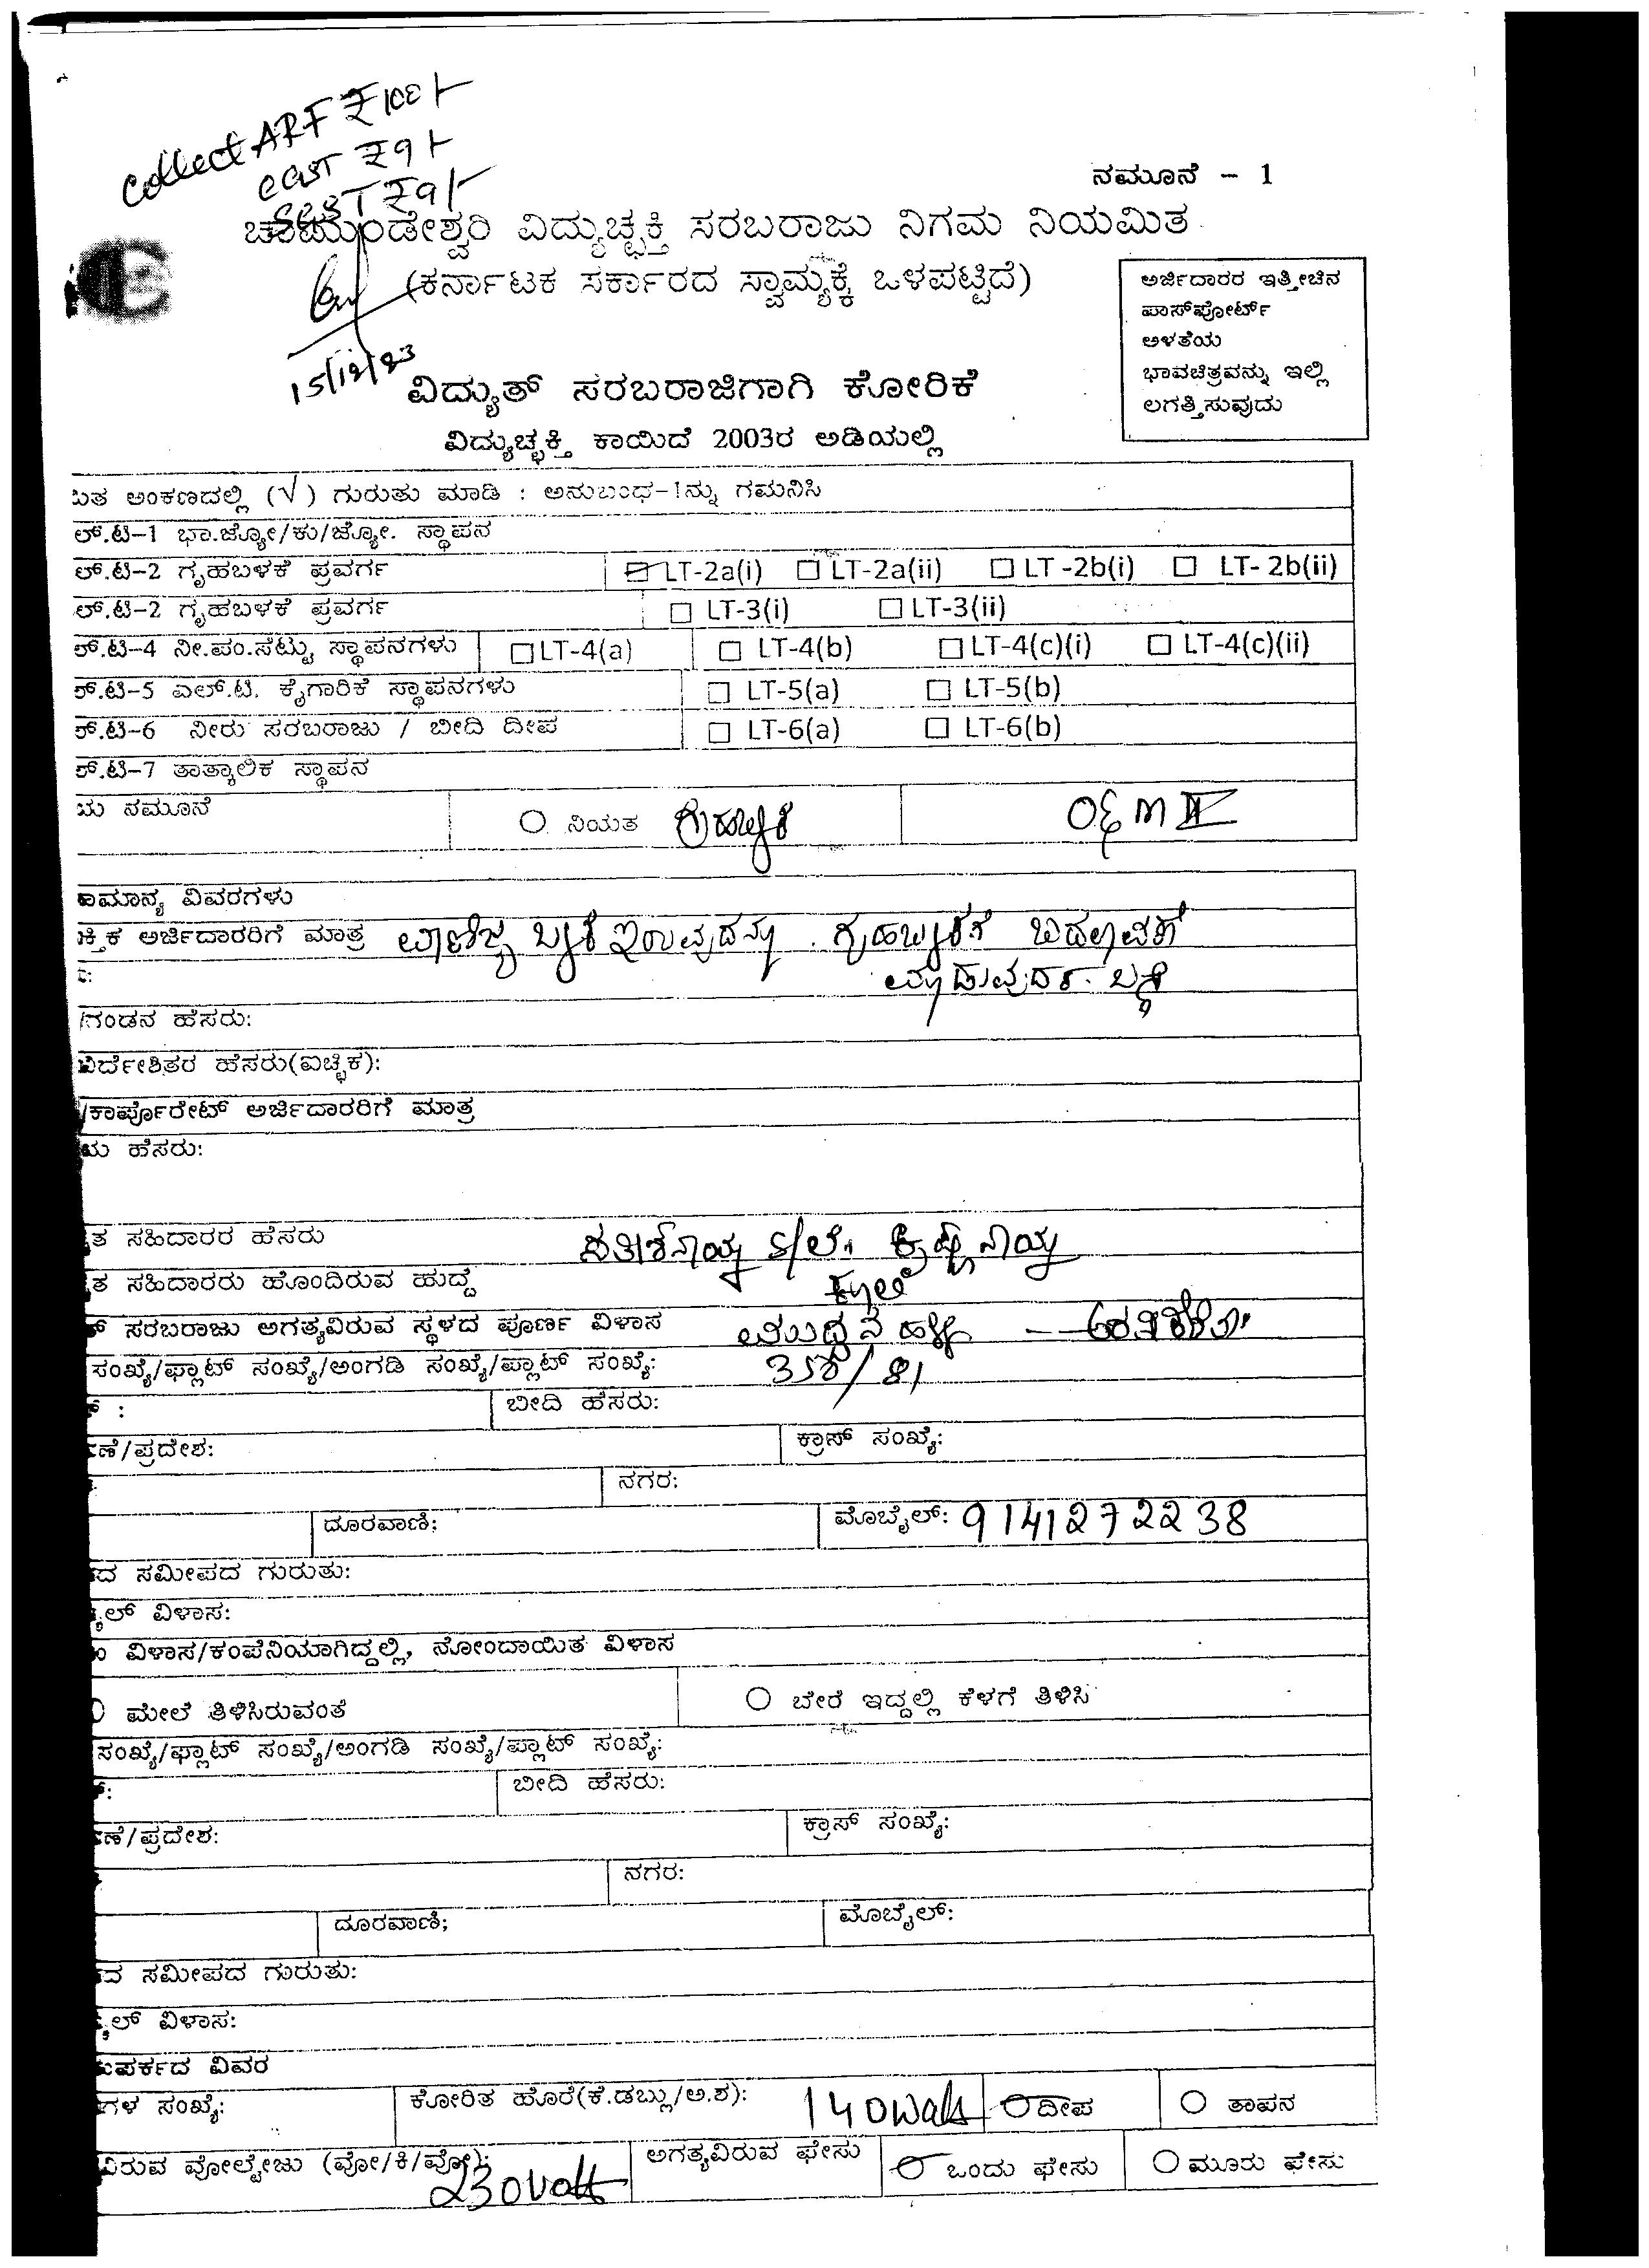 collect ARF ₹100/-
CGST ₹9/-
SGST ₹9/-
ನಮೂನೆ - 1
ಚಾಮುಂಡೇಶ್ವರಿ ವಿದ್ಯುಚ್ಛಕ್ತಿ ಸರಬರಾಜು ನಿಗಮ ನಿಯಮಿತ
(ಕರ್ನಾಟಕ ಸರ್ಕಾರದ ಸ್ವಾಮ್ಯಕ್ಕೆ ಒಳಪಟ್ಟಿದೆ)
15/12/23
ಅರ್ಜಿದಾರರ ಇತ್ತೀಚಿನ
ಪಾಸ್‌ಪೋರ್ಟ್
ಅಳತೆಯ
ಭಾವಚಿತ್ರವನ್ನು ಇಲ್ಲಿ
ಲಗತ್ತಿಸುವುದು
ವಿದ್ಯುತ್ ಸರಬರಾಜಿಗಾಗಿ ಕೋರಿಕೆ
ವಿದ್ಯುಚ್ಛಕ್ತಿ ಕಾಯಿದೆ 2003ರ ಅಡಿಯಲ್ಲಿ
ಅಂಕಣದಲ್ಲಿ (√) ಗುರುತು ಮಾಡಿ : ಅನುಬಂಧ-1ನ್ನು ಗಮನಿಸಿ
ಲ್.ಟಿ-1 ಭಾ.ಜ್ಯೋ/ಕು/ಜ್ಯೋ. ಸ್ಥಾಪನ
ಲ್.ಟಿ-2 ಗೃಹಬಳಕೆ ಪ್ರವರ್ಗ LT-2a(i) LT-2a(ii) LT -2b(i) LT- 2b(ii)
ಲ್.ಟಿ-2 ಗೃಹಬಳಕೆ ಪ್ರವರ್ಗ LT-3(i) LT-3(ii)
ಲ್.ಟಿ-4 ನೀ.ಪಂ.ಸೆಟ್ಟು ಸ್ಥಾಪನಗಳು LT-4(a) LT-4(b) LT-4(c)(i) LT-4(c)(ii)
ಲ್.ಟಿ-5 ಎಲ್.ಟಿ. ಕೈಗಾರಿಕೆ ಸ್ಥಾಪನಗಳು LT-5(a) LT-5(b)
ಲ್.ಟಿ-6 ನೀರು ಸರಬರಾಜು / ಬೀದಿ ದೀಪ LT-6(a) LT-6(b)
ಲ್.ಟಿ-7 ತಾತ್ಕಾಲಿಕ ಸ್ಥಾಪನ
ಯ ನಮೂನೆ ನಿಯತ
ಮಾನ್ಯ ವಿವರಗಳು
ಕ್ತಿಕ ಅರ್ಜಿದಾರರಿಗೆ ಮಾತ್ರ ವಾಣಿಜ್ಯ ಬಳಕೆ ಇರುವುದನ್ನು ಗೃಹಬಳಕೆಗೆ ಬದಲಾವಣೆ
ಮಾಡುವುದರ ಬಗ್ಗೆ
/ಗಂಡನ ಹೆಸರು:
ನಿರ್ದೇಶಿತರ ಹೆಸರು(ಐಚ್ಛಿಕ):
/ಕಾರ್ಪೊರೇಟ್ ಅರ್ಜಿದಾರರಿಗೆ ಮಾತ್ರ
ಯ ಹೆಸರು:
ತ ಸಹಿದಾರರ ಹೆಸರು
ತ ಸಹಿದಾರರು ಹೊಂದಿರುವ ಹುದ್ದೆ
ತ್ ಸರಬರಾಜು ಅಗತ್ಯವಿರುವ ಸ್ಥಳದ ಪೂರ್ಣ ವಿಳಾಸ
ಸಂಖ್ಯೆ/ಫ್ಲಾಟ್ ಸಂಖ್ಯೆ/ಅಂಗಡಿ ಸಂಖ್ಯೆ/ಪ್ಲಾಟ್ ಸಂಖ್ಯೆ: 358/81
ಬೀದಿ ಹೆಸರು:
ಣೆ/ಪ್ರದೇಶ: ಕ್ರಾಸ್ ಸಂಖ್ಯೆ:
ನಗರ:
ದೂರವಾಣಿ; ಮೊಬೈಲ್: 9141272238
ದ ಸಮೀಪದ ಗುರುತು:
ಲ್ ವಿಳಾಸ:
ವಿಳಾಸ/ಕಂಪೆನಿಯಾಗಿದ್ದಲ್ಲಿ, ನೋಂದಾಯಿತ ವಿಳಾಸ
ಮೇಲೆ ತಿಳಿಸಿರುವಂತೆ ಬೇರೆ ಇದ್ದಲ್ಲಿ ಕೆಳಗೆ ತಿಳಿಸಿ
ಸಂಖ್ಯೆ/ಫ್ಲಾಟ್ ಸಂಖ್ಯೆ/ಅಂಗಡಿ ಸಂಖ್ಯೆ/ಪ್ಲಾಟ್ ಸಂಖ್ಯೆ:
ಬೀದಿ ಹೆಸರು:
ಣೆ/ಪ್ರದೇಶ: ಕ್ರಾಸ್ ಸಂಖ್ಯೆ:
ನಗರ:
ದೂರವಾಣಿ; ಮೊಬೈಲ್:
ದ ಸಮೀಪದ ಗುರುತು:
ಲ್ ವಿಳಾಸ:
ಪರ್ಕದ ವಿವರ
ಗಳ ಸಂಖ್ಯೆ: ಕೋರಿತ ಹೊರೆ(ಕೆ.ಡಬ್ಲು/ಅ.ಶ): 140watts ದೀಪ ತಾಪನ
ವಿರುವ ವೋಲ್ಟೇಜು (ವೋ/ಕಿ/ವೋ): 230volt ಅಗತ್ಯವಿರುವ ಫೇಸು ಒಂದು ಫೇಸು ಮೂರು ಫೇಸು